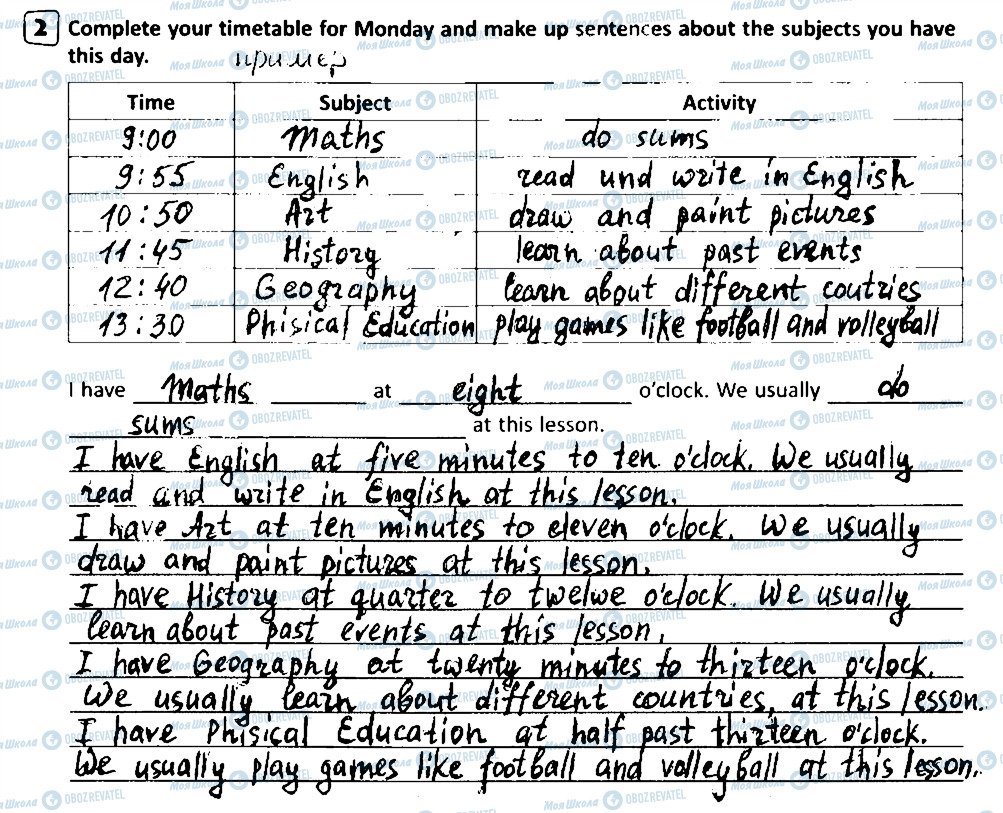 2 Complete your timetable for Monday and make up sentences about the subjects you have
this day. пример
Time Subject Activity
9:00 Maths do sums
9:55 English read und write in English
10:50 Art draw and paint pictures
11:45 History learn about past events
12:40 Geography learn about different coutries
13:30 Phisical Education play games like football and volleyball
I have Maths at eight o'clock. We usually do
sums at this lesson.
I have English at five minutes to ten o'clock. We usually
read and write in English at this lesson.
I have Art at ten minutes to eleven o'clock. We usually
draw and paint pictures at this lesson.
I have History at quarter to twelwe o'clock. We usually
learn about past events at this lesson.
I have Geography at twenty minutes to thirteen o'clock.
We usually learn about different countries, at this lesson.
I have Phisical Education at half past thirteen o'clock.
We usually play games like football and volleyball at this lesson.
Моя Школа OBOZREVATEL